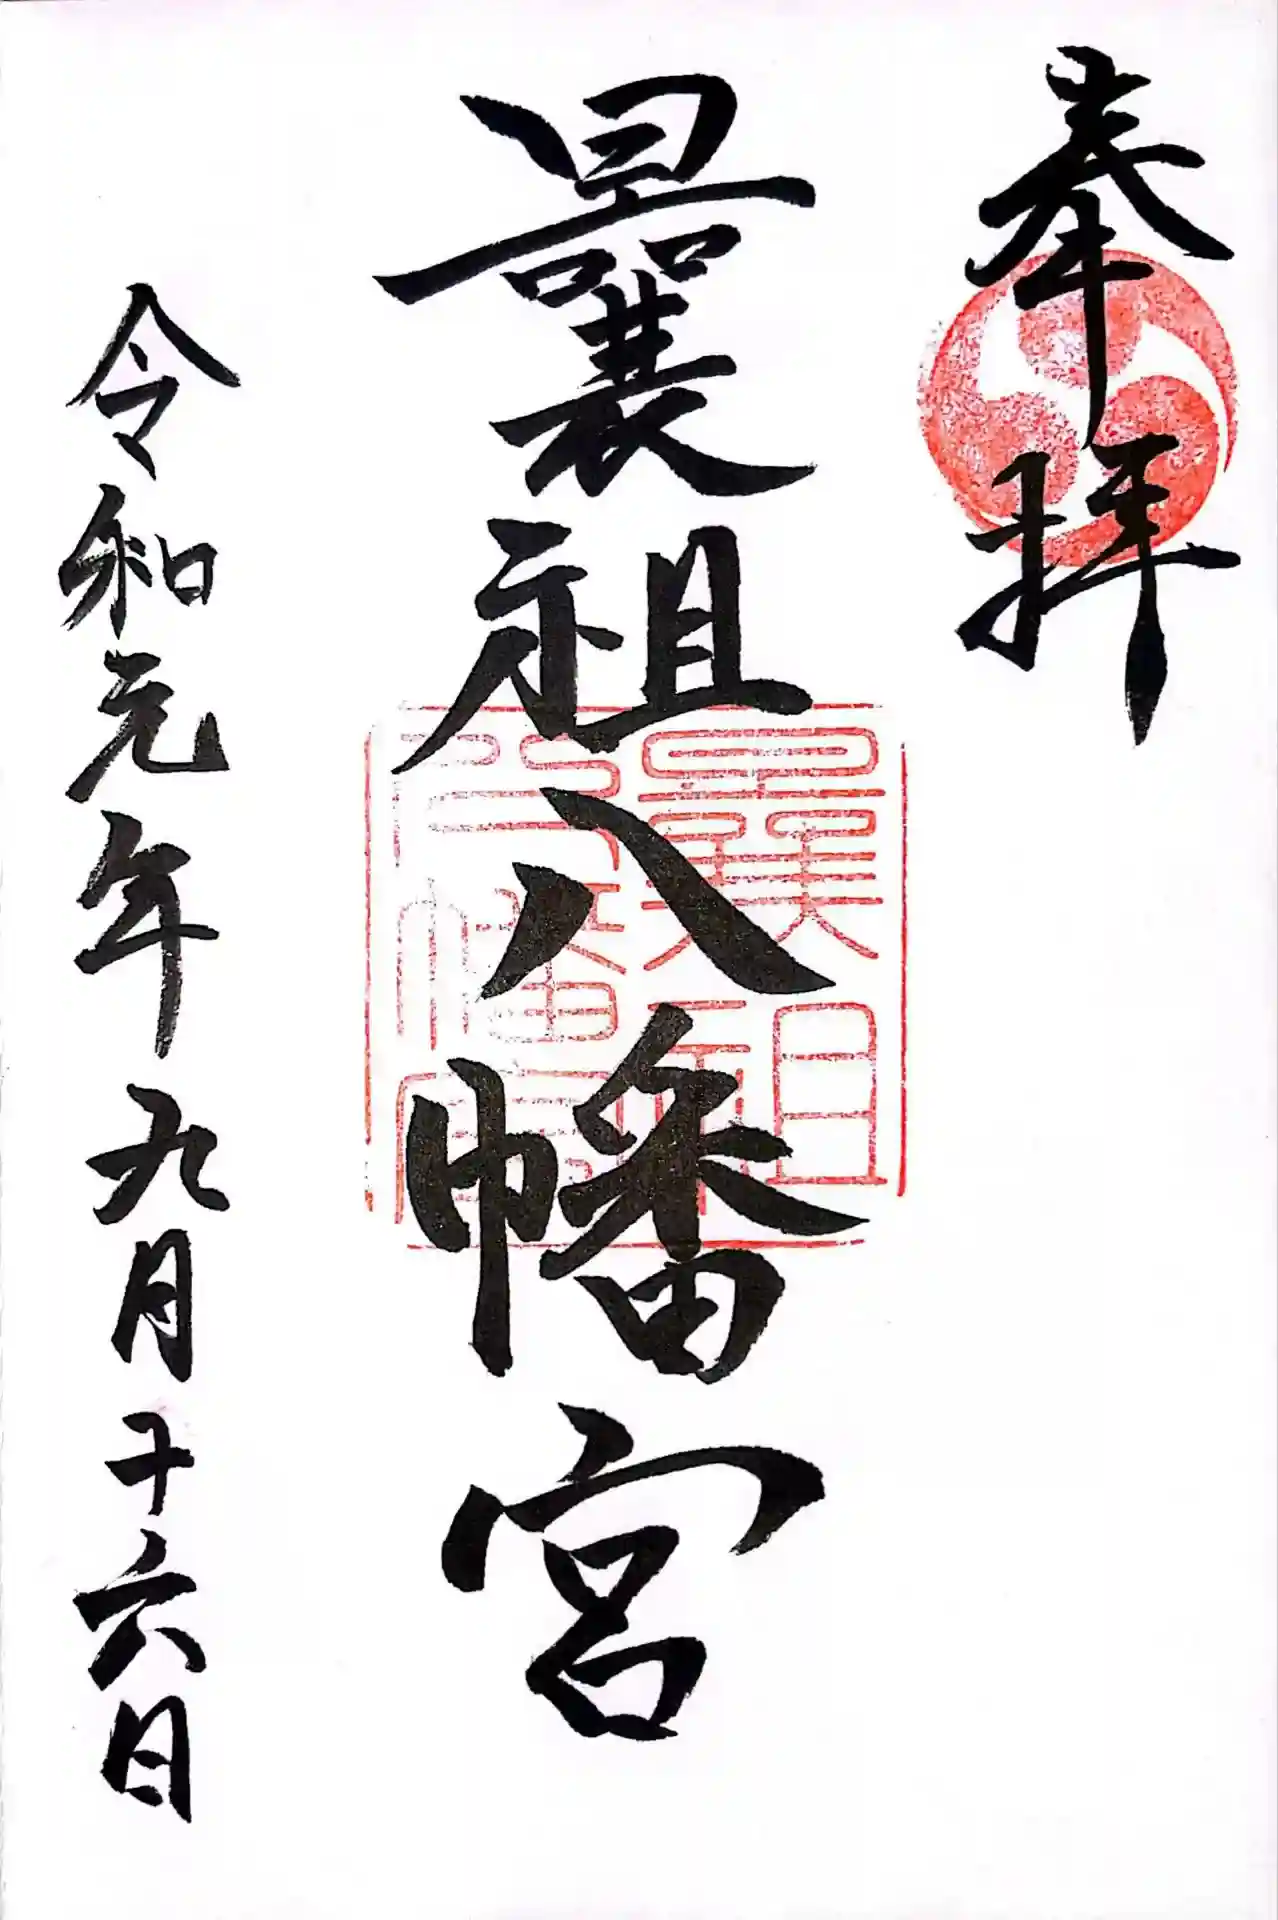 奉拝
曩祖八幡宮
曩祖
八幡宮
令和元年九月十六日